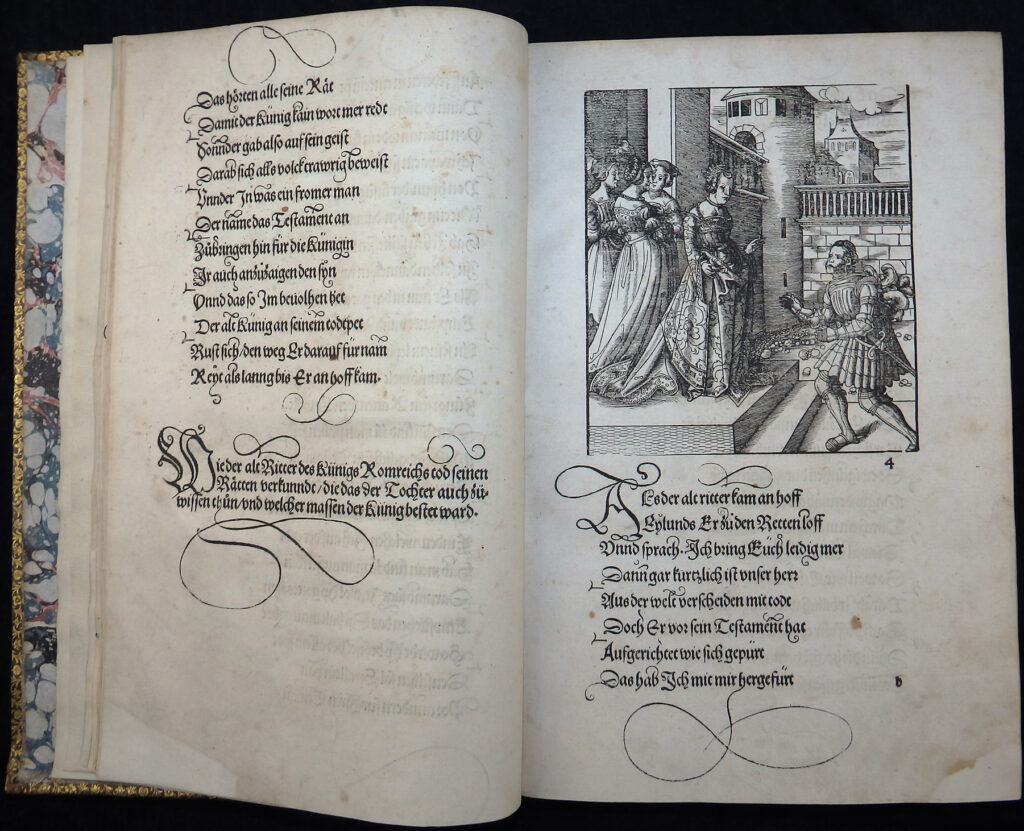 Das hörten alle seine Rät
Damit der Künig kain wort mer redt
Sonnder gab also auf sein geist
Darab sich alls volck trawrig beweist
Vnnder In was ein fromer man
Der name das Testament an
Zůbringen hin für die Künigin
Ir auch anzůzaigen den syn
Vnnd das so Im beuolhen het
Der alt Künig an seinem todtpet
Rust sich / den weg Er darauf für nam
Reyt als lanng bis Er an hoff kam.
Wie der alt Ritter des Künigs Romreichs tod seinen
Rätten verkunndt / die das der Tochter auch zů-
wissen thůn / vnd welcher massen der Künig bestet ward.
4
Als der alt ritter kam an hoff
Eylunds Er zů den Retten loff
Vnnd sprach. Ich bring Euch leidig mer
Dann gar kurtzlich ist vnser herr
Aus der welt verscheiden mit todt
Doch Er vor sein Testament hat
Aufgerichtet wie sich gepürt
Das hab Ich mit mir hergefürt
b